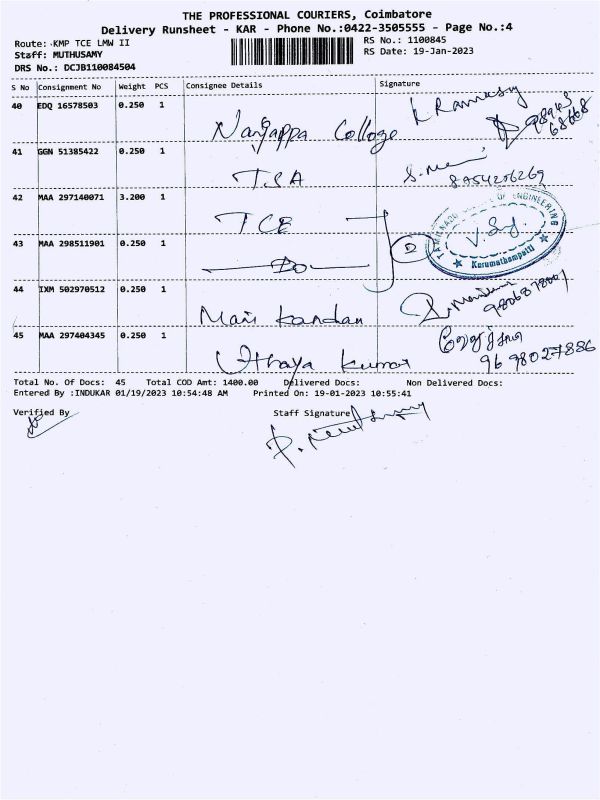 THE PROFESSIONAL COURIERS, Coimbatore
Delivery Runsheet - KAR - Phone No.:0422-3505555 - Page No.:4
Route: KMP TCE LMW II
RS No.: 1100845
Staff: MUTHUSAMY
RS Date: 19-Jan-2023
DRS No.: DCJB110084504
S No Consignment No Weight PCS Consignee Details Signature
40 EDQ 16578503 0.250 1 Nanjappa College K Ramasy
41 GGN 51385422 0.250 1 TSA
42 MAA 297140071 3.200 1 TCE
43 MAA 298511901 0.250 1 Do
44 IXM 502970512 0.250 1 Mani Kandan
45 MAA 297404345 0.250 1 Uthaya Kumar
96 98027886
COLLEGE OF ENGINEERING
Karumathampatti
Total No. Of Docs: 45 Total COD Amt: 1400.00 Delivered Docs: Non Delivered Docs:
Entered By :INDUKAR 01/19/2023 10:54:48 AM Printed On: 19-01-2023 10:55:41
Verified By Staff Signature